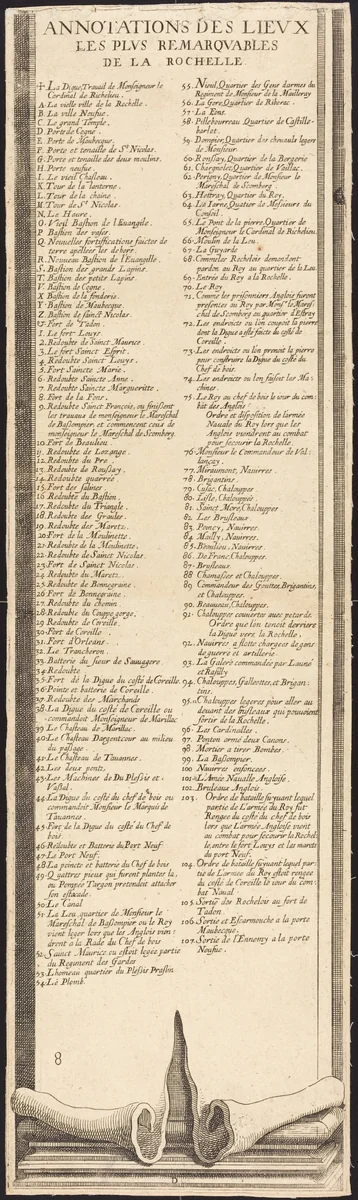 ANNOTATIONS DES LIEVX
LES PLVS REMARQVABLES
DE LA ROCHELLE
La Digue, Travail de Monseigneur le
Cardinal de Richelieu.
A. La vielle ville de la Rochelle.
B. La ville Neufue.
C. Le grand Temple.
D. Porte de Cogne.
E. Porte de Maubecque.
F. Porte et tenaille de St. Nicolas.
G. Porte et tenaille des deux moulins.
H. Porte neufue
I. Le vieil Chasteau.
K. Tour de la lanterne.
L. Tour de la chaine.
M. Tour de St. Nicolas.
N. Le Haure.
O. Vieil Bastion de l'Euangile.
P Bastion des vases
Q. Nouuelles fortifications faictes de
terre apellees les de hors.
R. Nouueau Bastion de l'Euangelle.
S. Bastion des grands Lapins.
T. Bastion des petits Lapins
V. Bastion de Cogne.
X Bastion de la fonderie.
Y. Bastion de Maubecque.
Z. Bastion de sainct Nicolas
Fort de Tadon.
1. Le fort Louys.
2. Redoubte de Sainct Maurice.
3. Le fort Sainct Esprit.
4. Redoubte Sainct Louys.
5. Fort Saincte Marie.
6. Redoubte Saincte Anne.
7. Redoubte Saincte Margueritte.
8. Fort de la Fons.
9. Redoubte Sainct François, ou finissent
les trauaux de monseigneur le Mareschal
de Bassompier et commencent ceux de
monseigneur le Mareschal de Scomberg.
10. Fort de Beaulieu
11. Redoubte de Lozange.
12. Redoubte du Pro
13. Redoubte de Roussay.
14. Redoubte quarrée
15. Fort des salines
16. Redoubte du Bastion.
17. Redoubte du Triangle.
18. Redoubte des Groües.
19. Redoubte des Maretz.
20. Fort de la Moulinette.
21. Redoubte de la Moulinette.
22. Redoubte de Sainct Nicolas.
23. Fort de Sainct Nicolas.
24. Redoubte du Maretz.
25. Redoubte de Bonnegraine.
26. Fort de Bonnegraine.
27. Redoubte du chemin.
28. Redoubte du Couppe gorge.
29. Redoubte de Coreille.
30. Fort de Coreille.
31. Fort d'Orleans.
32. Le Trancheron.
33. Batterie du sieur de Sauuagere
34. Redoubte
35. Fort de la Digue du costé de Coreille.
36. Pointe et batterie de Coreille.
37. Redoubte des Marchands
38. La Digue du costé de Coreille ou
commandoit Monseigneur de Marillac
39. Le Chasteau de Marillac.
40. Le Chasteau Dargentcour au milieu
du passage.
41. Le Chasteau de Tauannes.
42. Les deux ponts.
43. Les Machines de Du Plessis et
Vassal.
44. La Digue du costé du chef de bois ou
commandoit Monsieur le Marquis de
Tauannes.
45. Fort de la Digue du costé du Chef de
bois.
46. Redoute et Batterie du Port Neuf
47. Le Port Neuf.
48. La poincte et batterie du Chef de bois
49. Quattres pieux qui furent plantez la,
ou Pompée Targon pretendoit attacher
son estacade.
50. Le Canal
51. La Lou quartier de Monsieur le
Mareschal de Bassompier ou le Roy
vient loger lors que les Anglois vin:
drent a la Rade du Chef de bois
52. Sainct Maurice, ou estoit logée partie
du Regiment des Gardes
53. Lhomeau quartier du Plessis Praslon
54. Le Plomb.
55. Nieul, Quartier des Gens darmes du
Regiment de Monsieur de la Mailleray
56. La Gorc, Quartier de Riberac.
57. La Fons.
58. Pilleboureau Quartier de Castille-
barlot.
59. Dompier, Quartier des cheuaux legers
de Monsieur.
60. Ronssay, Quartier de la Bergerie
61. Chargniolet, Quartier de Vaillac.
62. Perigny, Quartier de Monsieur le
Mareschal de Scomberg.
63. Hestray, Quartier du Roy.
64. La Iarne, Quartier de Messieurs du
Conseil.
65. Le Pont de la pierre. Quartier de
Monseigneur le Cardinal de Richelieu.
66. Moulin de la Lou.
67. La Guyarde
68. Comme les Rochelois demandent
pardon au Roy au quartier de la Lou.
69. Entrée du Roy a la Rochelle.
70. Le Roy
71. Comme les prisonniers Anglois furent
presentes au Roy par Monsr. le Mares:
chal de Scomberg au quartier d'Estray
72. Les endroicts ou l'on coupoit la pierre
dont la Digue a esté faicte du costé de
Coreille.
73. Les endroicts ou l'on prenoit la pierre
pour construire la Digue du costé du
Chef de bois.
74. Les endroicts ou l'on faisoit les Ma:
chines
75. Le Roy au chef de bois le iour du com:
bat des Anglois
Ordre et disposition de l'armée
Nauale du Roy lors que les
Anglois viendront au combat
pour secourir la Rochelle.
76. Monsieur le Commandeur de Val:
lançay.
77. Miraumont, Nauirres.
78. Brigantins.
79. Cusac, Chalouppes
80. Lisle, Chalouppes.
81. Sainct More, Chalouppes
82. Les Brusleaux
83. Poincy, Nauirres.
84. Mailly, Nauirres.
85. Beaulieu, Nauirres.
86. De Franc, Chalouppes.
87. Brusleaux
88. Chamassée et Chalouppes.
89. Commandeur des Gouttes, Brigantins,
et Chalouppes
90. Beaueau, Chalouppes.
91. Chalouppes couuertes auec petards.
Ordre que l'on tenoit derriere
la Digue vers la Rochelle.
92. Nauirres a flotte chargées de gens
de guerre et artillerie.
93. La Galere commandée par Launé
et Rasilly
94. Chalouppes, Galliottes, et Brigan:
tins.
95. Chalouppes legeres pour aller au
deuant des brusleaux qui pouuoient
sortir de la Rochelle.
96. Les Cardinalles.
97. Ponton armé deux Canons.
98. Mortier a tirer Bombes.
99. La Bassompier.
100. Nauires enfoncées.
101. L'Armée Nauale Angloise.
102. Bruleaux Anglois.
103. Ordre de bataille suyuant lequel
partie de l'Armée du Roy fut
Rengée du costé du chef de bois
lors que l'Armée Angloise vient
au combat pour secourir la Rochel:
le, entre le fort Louys et les marets
du port Neuf.
104. Ordre de bataille suyuant lequel par:
tie de l'Armée du Roy estoit rengée
du costé de Coreille le iour du com:
bat Naual
105. Sortie des Rochelois au fort de
Tadon
106. Sortie et Escarmouche a la porte
Maubecque.
107. Sortie de l'Ennemy a la porte
Neufue.
8
D